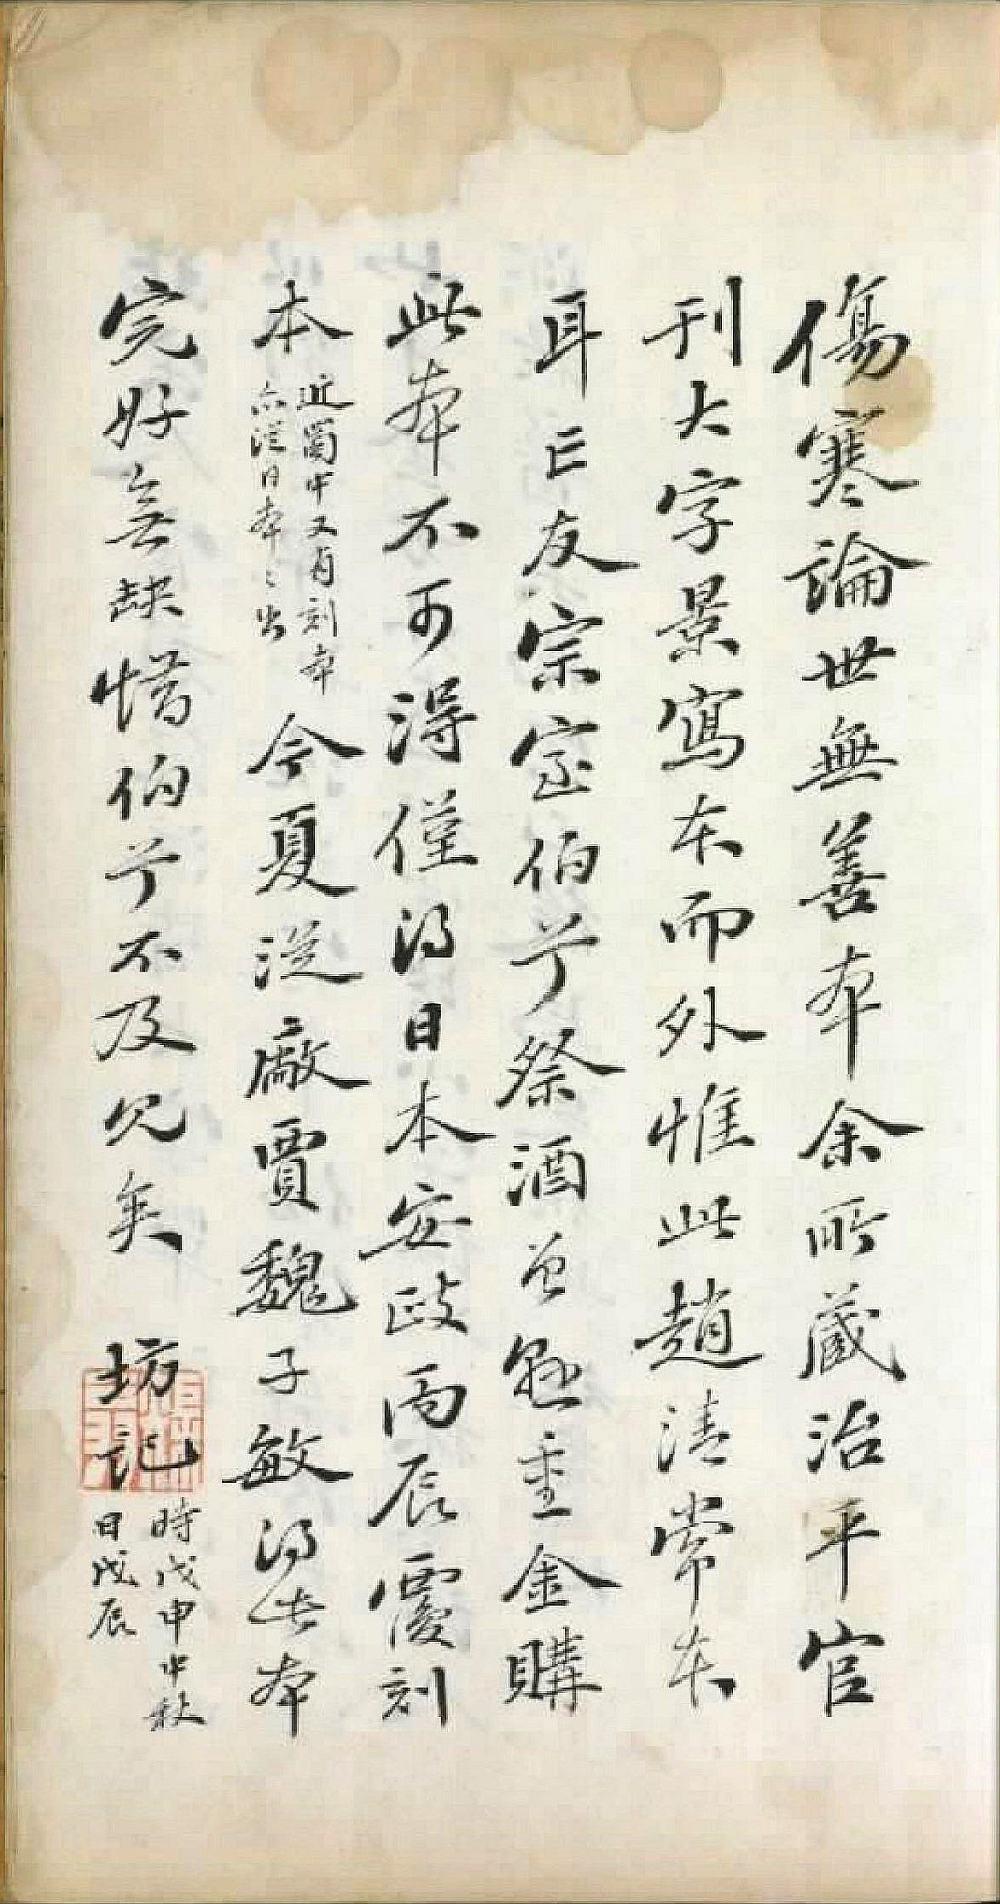 傷寒論世無善本余所藏治平官
刊大字景寫本而外惟此趙清常本
耳亡友宗室伯兮祭酒曾懸重金購
此本不可得僅得日本安政丙辰覆刻
本
近蜀中又有刻本
亦從日本本出
今夏從廠賈魏子敏得此本
完好無缺惜伯兮不及見矣
坊記
時戊申中秋
日戊辰